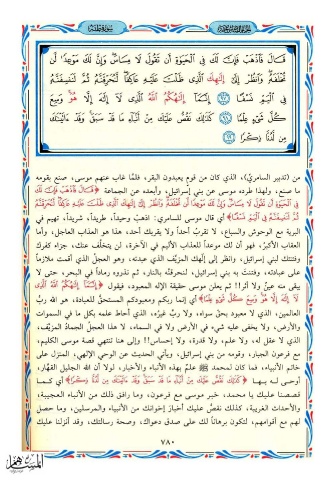 سورة طه
قَالَ فَاذْهَبْ فَإِنَّ لَكَ فِي الْحَيَوٰةِ أَن تَقُولَ لَا مِسَاسَ وَإِنَّ لَكَ مَوْعِدًا لَّن
تُخْلَفَهُۥ وَانظُرْ إِلَىٰٓ إِلَٰهِكَ الَّذِي ظَلْتَ عَلَيْهِ عَاكِفًا لَّنُحَرِّقَنَّهُۥ ثُمَّ لَنَنسِفَنَّهُۥ
فِي الْيَمِّ نَسْفًا ﴿٩٧﴾ إِنَّمَآ إِلَٰهُكُمُ اللَّهُ الَّذِي لَآ إِلَٰهَ إِلَّا هُوَ وَسِعَ
كُلَّ شَيْءٍ عِلْمًا ﴿٩٨﴾ كَذَٰلِكَ نَقُصُّ عَلَيْكَ مِنْ أَنۢبَآءِ مَا قَدْ سَبَقَ وَقَدْ ءَاتَيْنَٰكَ
مِن لَّدُنَّا ذِكْرًا ﴿٩٩﴾
من (تدبير السامريّ)، الذي كان من قوم يعبدون البقر، فلمّا غاب عنهم موسى، صنع بقومه
ما صنع، ولهذا طرده موسى عن بني إسرائيل، وأبعده عن الجماعة ﴿قَالَ فَاذْهَبْ فَإِنَّ لَكَ
فِي الْحَيَوٰةِ أَن تَقُولَ لَا مِسَاسَ وَإِنَّ لَكَ مَوْعِدًا لَّن تُخْلَفَهُۥ وَانظُرْ إِلَىٰٓ إِلَٰهِكَ الَّذِي ظَلْتَ عَلَيْهِ عَاكِفًا لَّنُحَرِّقَنَّهُۥ
ثُمَّ لَنَنسِفَنَّهُۥ فِي الْيَمِّ نَسْفًا﴾ أي قال موسى للسامري: اذهب وحيداً، طريداً، شريداً، تهيم في
البرية مع الوحوش والسباع، لا تقرب أحداً ولا يقربك أحد، هذا هو العذاب العاجل، وأما
العقاب الأكبر: فهو أن لك موعداً للعذاب الأليم في الآخرة، لن يتخلّف عنك، جزاء كفرك
وفتنتك لبني إسرائيل، وانظر إلى إلهك المزيّف الذي عبدته، وهو العجل الذي أقمت ملازماً
على عبادته، وفتنت به بني إسرائيل، لنحرقنّه بالنار، ثم نذروه رماداً في البحر، حتى لا
يبقى منه عينٌ ولا أثر!! ثم يعلن موسى حقيقة الإله المعبود، فيقول ﴿إِنَّمَآ إِلَٰهُكُمُ اللَّهُ الَّذِي
لَآ إِلَٰهَ إِلَّا هُوَ وَسِعَ كُلَّ شَيْءٍ عِلْمًا﴾ أي إنما ربكم ومعبودكم المستحقُّ للعبادة، هو الله ربُّ
العالمين، الذي لا معبود بحق سواه، ولا ربَّ غيرُه، الذي أحاط علمه بكل ما في السموات
والأرض، ولا يخفى عليه شيء في الأرض ولا في السماء، لا هذا العجل الجماد المزيّف،
الذي لا عقل له، ولا علم، ولا قدرة، ولا إحساس!! وإلى هنا تنتهي قصة موسى الكليم،
مع فرعون الجبار، وقومه من بني إسرائيل، ويأتي الحديث عن الوحي الإلهي، المنزل على
خاتم الأنبياء، فما كان لمحمد ﷺ علمٌ بهذه الأنباء والأخبار، لولا أن الله الجليل القهّار،
أوحى له بها ﴿كَذَٰلِكَ نَقُصُّ عَلَيْكَ مِنْ أَنۢبَآءِ مَا قَدْ سَبَقَ وَقَدْ ءَاتَيْنَٰكَ مِن لَّدُنَّا ذِكْرًا﴾ أي كما
قصصنا عليك يا محمد، خبر موسى مع فرعون، وما رافق ذلك من الأنباء العجيبة،
والأحداث الغريبة، كذلك نقصُّ عليك أخبار إخوانك من الأنبياء والمرسلين، وما حصل
لهم مع أقوامهم، لتكون برهاناً لك على صدق دعواك، وصحة رسالتك، وقد أنزلنا عليك
٧٨٠